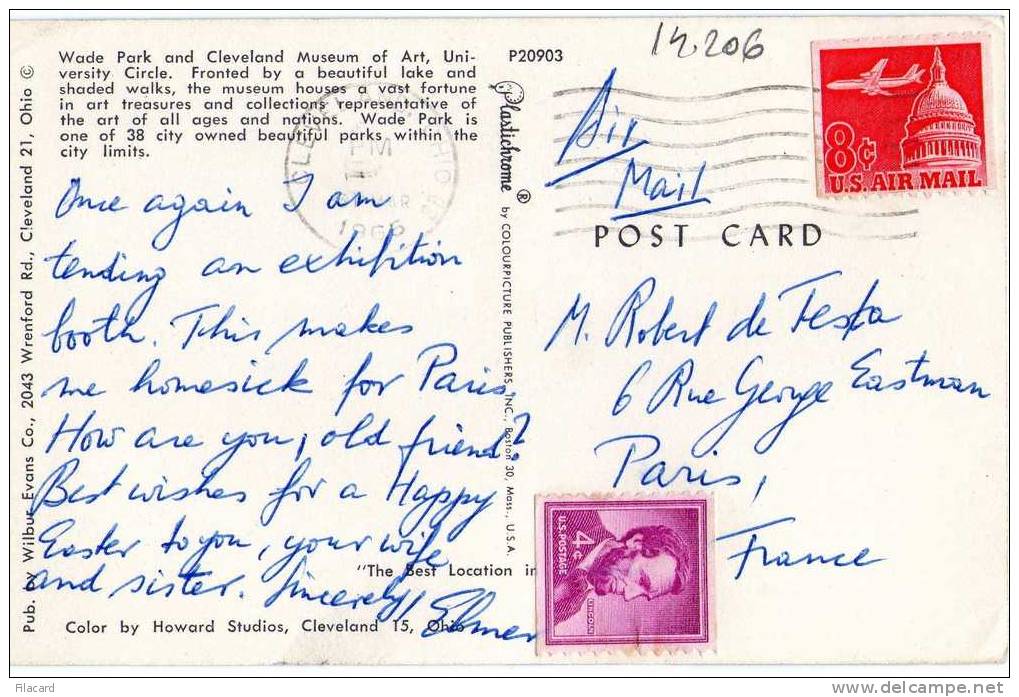 Wade Park and Cleveland Museum of Art, Uni-
versity Circle. Fronted by a beautiful lake and
shaded walks, the museum houses a vast fortune
in art treasures and collections representative of
the art of all ages and nations. Wade Park is
one of 38 city owned beautiful parks within the
city limits.
P20903
14206
Air
Mail
8¢
U.S. AIR MAIL
PM
1966
POST CARD
Once again I am
tending an exhibition
booth. This makes
me homesick for Paris.
How are you, old friend?
Best wishes for a Happy
Easter to you, your wife
and sister. Sincerely, Elmer
M. Robert de Testa
6 Rue George Eastman
Paris,
France
4¢
U.S. POSTAGE
LINCOLN
"The Best Location in
Color by Howard Studios, Cleveland 15, Ohio
Pub. by Wilbur Evans Co., 2043 Wrenford Rd., Cleveland 21, Ohio ©
Plastichrome ® by COLOURPICTURE PUBLISHERS, INC., Boston 30, Mass., U.S.A.
Filacard
delcampe.net